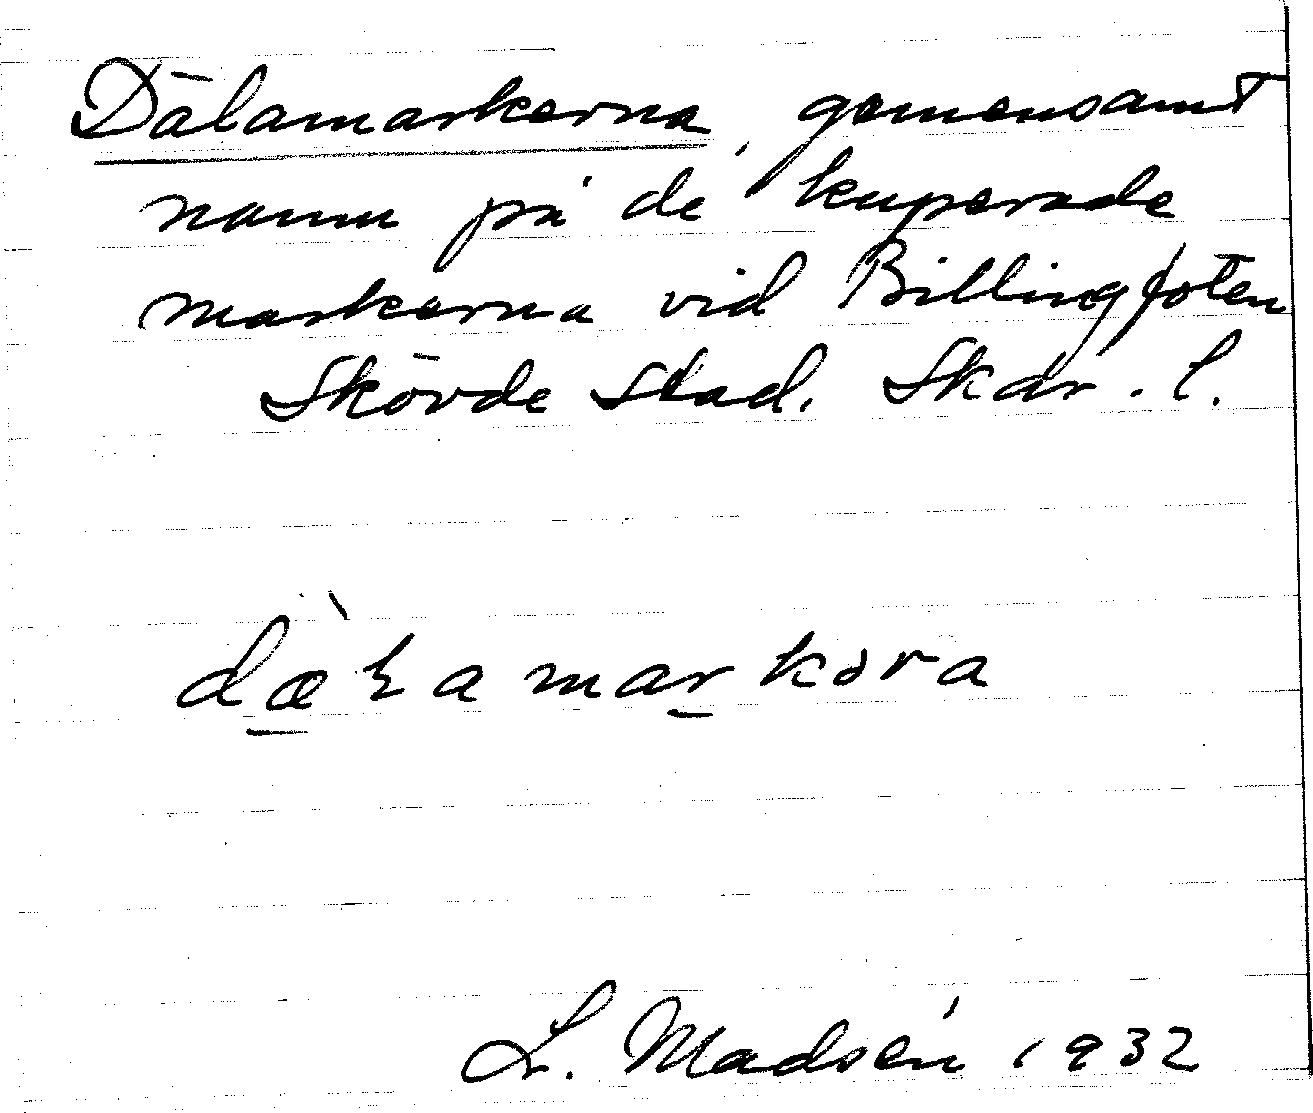 Dälamarkerna, gemensamt
namn på de kuperade
markerna vid Billingfoten
Skövde stad. Skar. l.
L. Madsén 1932